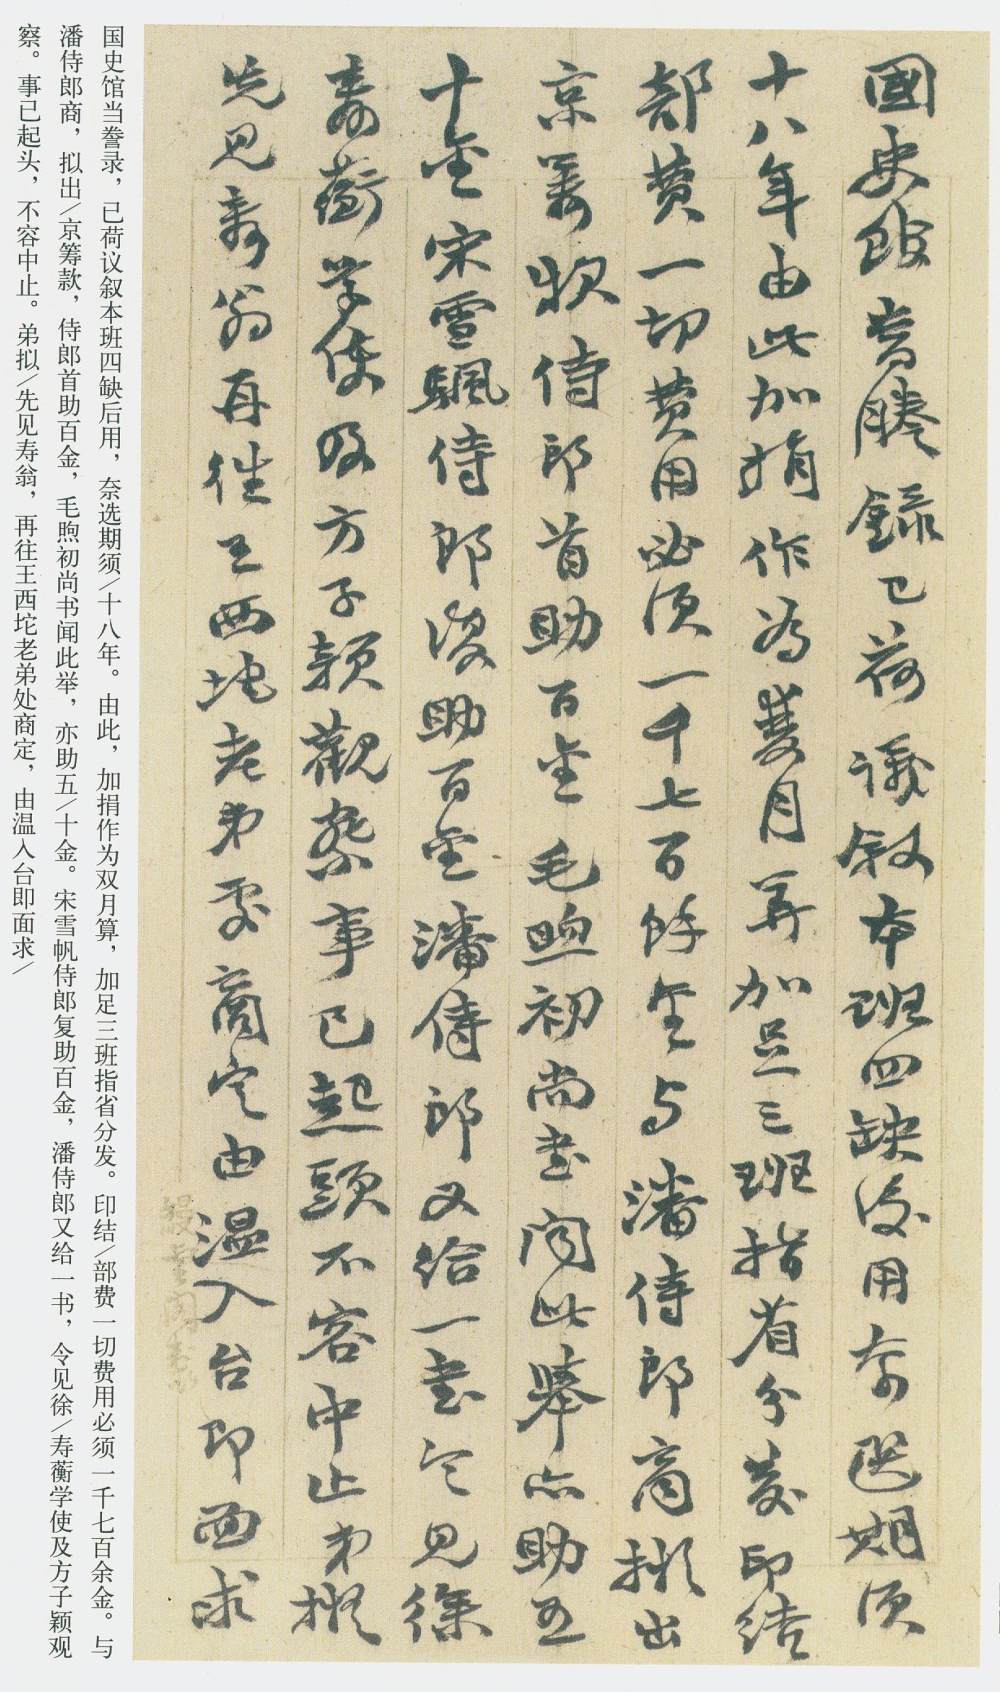 國史館當謄錄已荷議敘本班四缺後用奈選期須
十八年由此加捐作為雙月算加足三班指省分發印結
部費一切費用必須一千七百餘金与潘侍郎商擬出
京籌款侍郎首助百金毛煦初尚書聞此舉亦助五
十金宋雪颿侍郎復助百金潘侍郎又給一書令見徐
壽蘅學使及方子穎觀察事已起頭不容中止弟擬
先見壽翁再往王西坨老弟處商定由温入台即面求
国史馆当誊录，已荷议叙本班四缺后用，奈选期须/十八年。由此，加捐作为双月算，加足三班指省分发。印结/部费一切费用必须一千七百余金。与
潘侍郎商，拟出/京筹款，侍郎首助百金，毛煦初尚书闻此举，亦助五/十金。宋雪帆侍郎复助百金，潘侍郎又给一书，令见徐/寿蘅学使及方子颖观
察。事已起头，不容中止。弟拟/先见寿翁，再往王西坨老弟处商定，由温入台即面求/